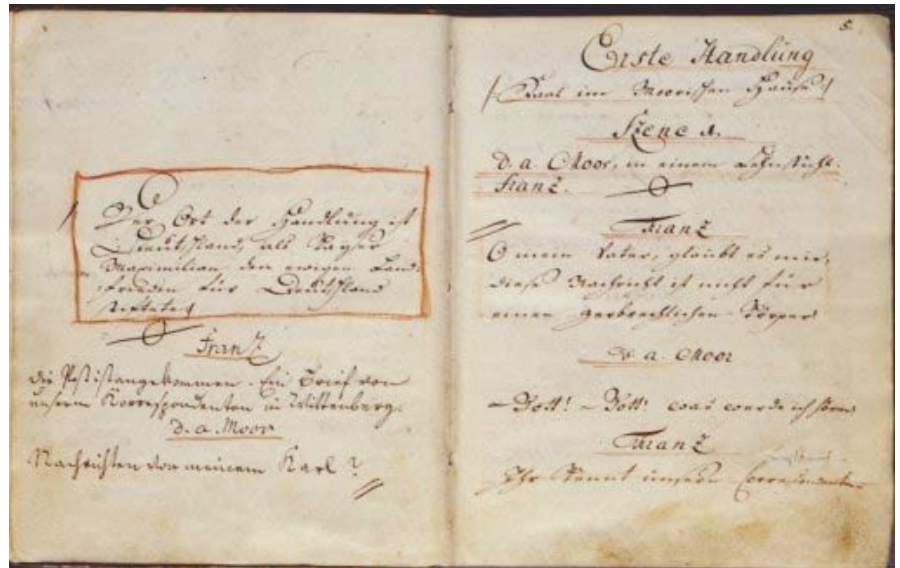 Der Ort der Handlung ist
Deutschland, als Kayser
Maximilian den ewigen Land-
frieden für Deutschland
stiftete
Franz
die Post ist angekommen. Ein Brief von
unserm Korrespondenten in Wittenberg.
D. a. Moor
Nachrichten von meinem Karl?
5.
Erste Handlung
/ Saal im Moorischen Hause /
Szene 1.
D. a. Moor, in einem Lehnstuhl.
Franz.
Franz
O mein Vater, glaubt es mir.
diese Nachricht ist nicht für
einen zerbrechlichen Körper
D. a. Moor
– Gott! – Gott! was werde ich hören
Franz
Ihr kennt unsern Correspondenten